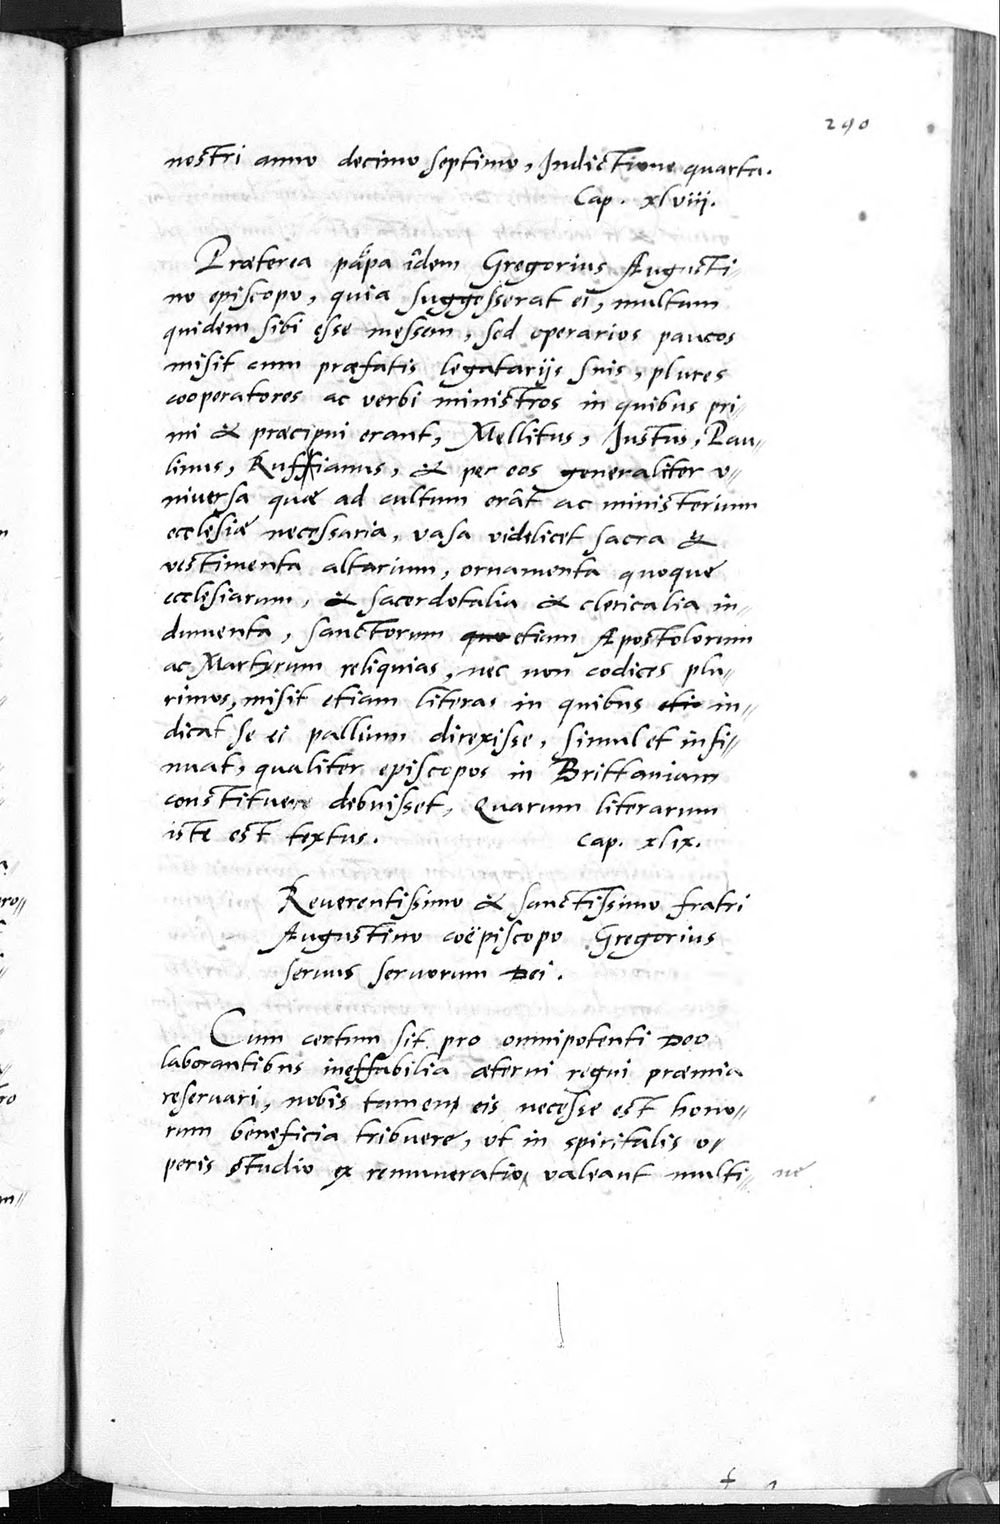 290
nostri anno decimo septimo, Indictione quarta.
Cap. xlviii.
Præterea papa idem Gregorius Augusti-
no episcopo, quia suggesserat ei, multam
quidem sibi esse messem, sed operarios paucos
misit cum præfatis legatarijs suis, plures
cooperatores ac verbi ministros in quibus pri-
mi & præcipui erant, Mellitus, Justus, Pau-
linus, Ruffianus, & per eos generaliter v-
niversa quæ ad cultum erāt ac ministerium
ecclesiæ necessaria, vasa videlicet sacra &
vestimenta altarium, ornamenta quoque
ecclesiarum, & sacerdotalia & clericalia in-
dumenta, sanctorum etiam Apostolorum
ac Martyrum reliquias, nec non codices plu-
rimos, misit etiam literas in quibus in-
dicat se ei pallium direxisse, simul et insi-
nuat, qualiter episcopos in Brittaniam
constituere debuisset, Quarum literarum
iste est textus.
Cap. xlix.
Reuerentissimo & sanctissimo fratri
Augustino coëpiscopo Gregorius
seruus seruorum Dei.
Cum certum sit pro omnipotenti Deo
laborantibus ineffabilia æterni regni præmia
reseruari, nobis tamen eis necesse est hono-
rum beneficia tribuere, vt in spiritalis o-
peris studio ex remuneratio valeant multi-
ne